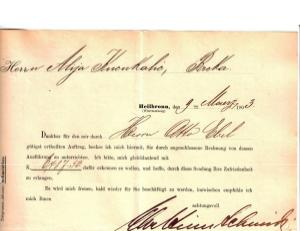 Herrn Alija Brcka.
Heilbronn, den 9 März 1903
(Württemberg)
Dankbar für den mir durch Herrn Otto Ebel
gütigst ertheilten Auftrag, beehre ich mich hiermit, Sie durch angeschlossene Rechnung von dessen
Ausführung zu unterrichten. Ich bitte, mich gleichlautend mit
dafür erkennen zu wollen, und hoffe, durch diese Sendung Ihre Zufriedenheit
zu erlangen.
Es wird mich freuen, bald wieder für Sie beschäftigt zu werden, inzwischen empfehle ich
mich Ihnen
achtungsvoll